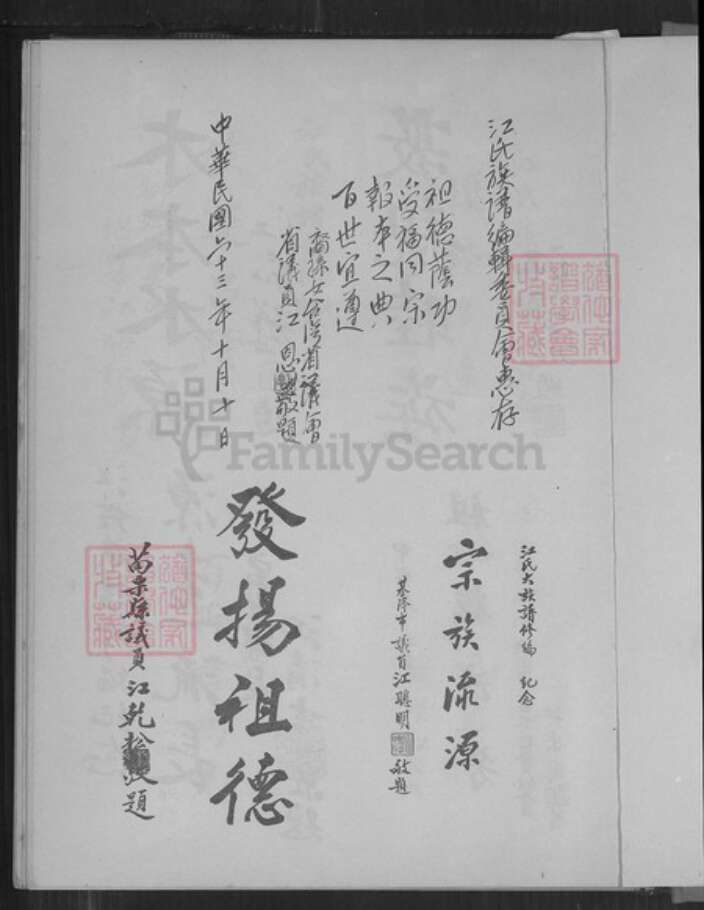 江氏族譜編輯委員會惠存
祖德蔭功
受福同宗
報本之典
百世宜遵
裔孫女台湾省議會
省議員江恩敬題
中華民國六十三年十月十日
江氏大族譜修編 紀念
宗族流源
基隆市議員江聰明敬題
發揚祖德
苗栗縣議員江乾敬題
FamilySearch